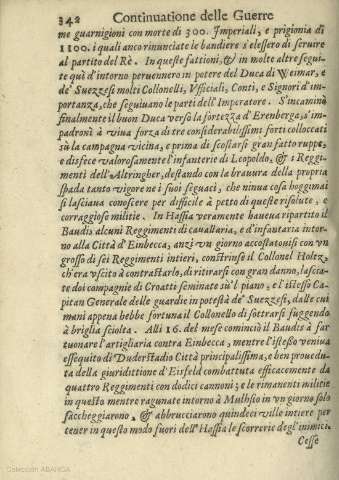 342 Continuatione delle Guerre
me guarnigioni con morte di 300. Imperiali, e prigionia di
1100. i quali anco rinunciate le bandiere s'elessero di seruire
al partito del Rè. In queste fattioni, & in molte altre segui-
te quì d'intorno peruennero in potere del Duca di Weimar, e
de' Suezzesi molti Collonelli, Vfficiali, Conti, e Signori d'im-
portanza, che seguiuano le parti dell'Imperatore. S'incaminò
finalmente il buon Duca verso la fortezza d'Erenberga, s'im-
padronì à viua forza di tre considerabilissimi forti colloccati
sù la campagna vicina, e prima di scostarsi gran fatto ruppe,
e disfece valorosamente l'infanterie di Leopoldo, & i Reggi-
menti dell'Altringher, destando con la brauura della propria
spada tanto vigore ne i suoi seguaci, che ninua cosa hoggimai
si lasciaua conoscere per difficile à petto di queste risolute, e
corraggiose militie. In Hassia veramente haueua ripartito il
Baudis alcuni Reggimenti di cauallaria, e d'infantaria intor-
no alla Città d'Eimbecca, anzi vn giorno accostatousi con vn
grosso di sei Reggimenti intieri, constrinse il Collonel Holtz,
ch'era vscito à contrastarlo, di ritirarsi con gran danno, lascia-
te doi compagnie di Croatti seminate sù'l piano, e l'istesso Ca-
pitan Generale delle guardie in potestà de' Suezzesi, dalle cui
mani appena hebbe fortuna il Collonello di sottrarsi fuggendo
à briglia sciolta. Alli 16. del mese cominciò il Baudis à far
tuonare l'artigliaria contra Eimbecca, mentre l'istesso veniua
essequito di Duderstadio Città principalissima, e ben proeuedu-
ta della giuridittione d'Eisfeld combattuta efficacemente da
quattro Reggimenti con dodici cannoni; e le rimanenti militie
in questo mentre ragunate intorno à Mulhsio in vn giorno solo
saccheggiarono, & abbrucciarono quindeci ville intiere per
tener in questo modo fuori dell'Hassia le scorrerie degl'inimici.
Cesse
Colección ABANCA